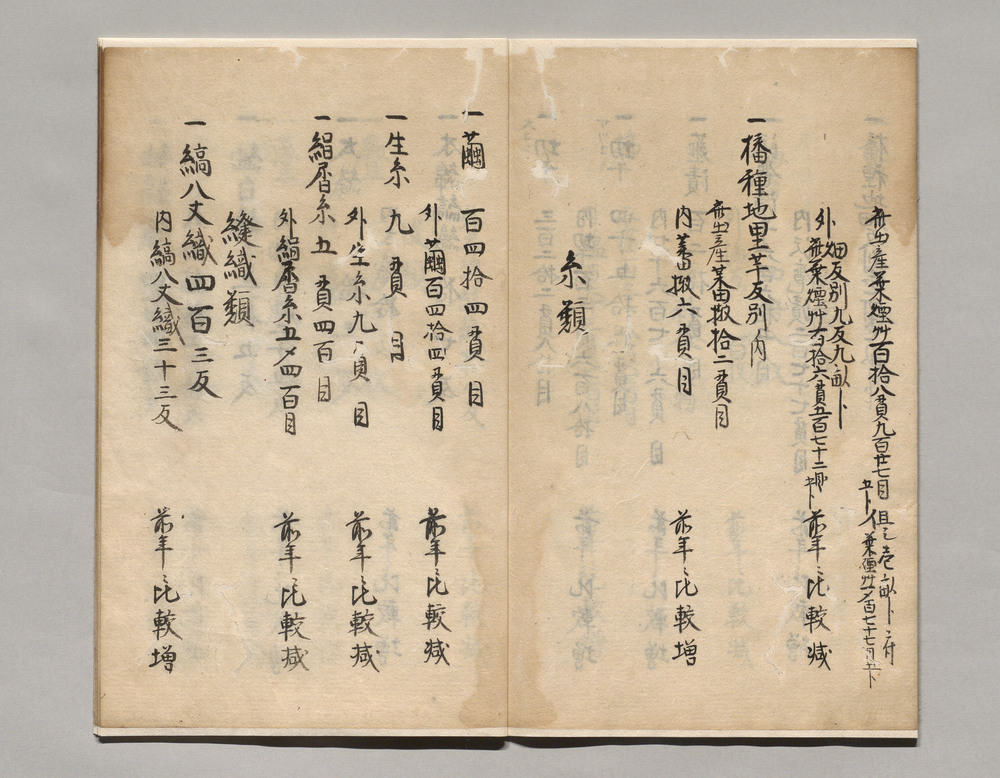 此出產葉煙艸百拾八貫九百廿七目
但シ壱畝卜ニ付
葉煙艸百七十七目五卜
外畑反別九反九畝卜
葉煙艸百拾六貫五百七十二目五卜
前年ニ比較減
一播種地里芋反別 内
此出產蕃椒拾二貫目
内蕃椒六貫目 前年ニ比較増
糸類
一繭 百四拾四貫目
外繭百四拾四貫目 前年ニ比較減
一生糸 九貫目
外生糸九貫目 前年ニ比較减
一絹屑糸 五貫四百目
外絹屑糸五〆四百目 前年ニ比較减
縫織類
一縞八丈織四百三反
内縞八丈織三十三反 前年ニ比較増